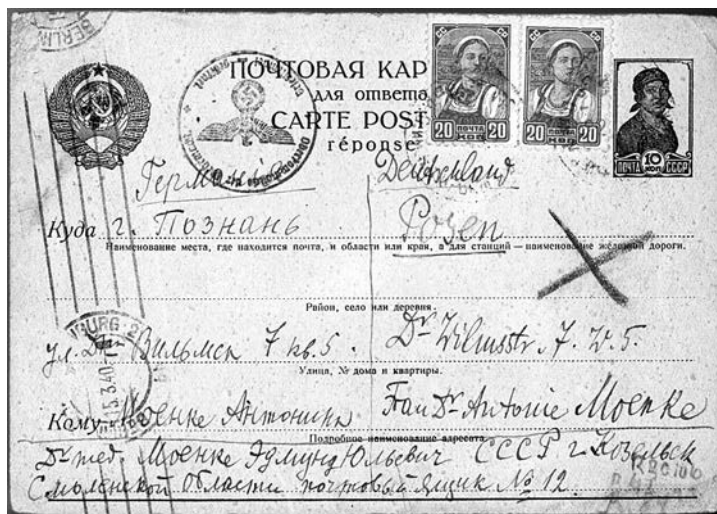 BERLIN
ПОЧТОВАЯ КАР
для ответа
CARTE POST
réponse
20 ПОЧТА КОП 20
20 ПОЧТА КОП 20
10 КОП
ПОЧТА СССР
Deutschland
Куда г. Познань Posen
Наименование места, где находится почта, и области или края, а для станций — наименование железной дороги.
Район, село или деревня.
BURG 2
5.3.40
ул. Вильмса 7 кв. 5. Dr Wilmsstr. 7. W. 5.
Улица, № дома и квартиры.
Кому Моенке Антонина Frau Dr Antonie Moenke
Подробное наименование адресата.
Dr med. Моенке Эдмунд Юльевич СССР г. Козельск
Смоленской области почтовый ящик № 12.